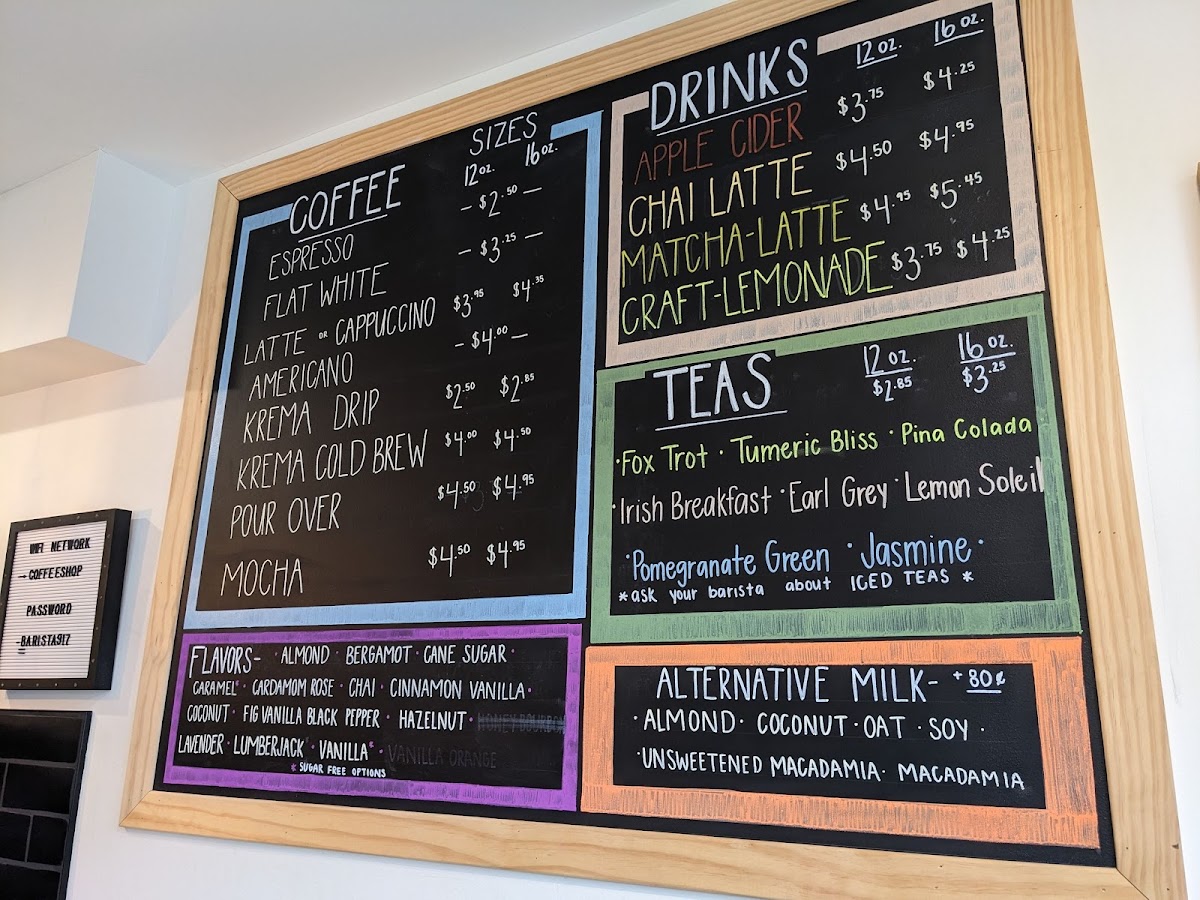 COFFEE
SIZES
12oz. 16oz.
ESPRESSO - $2.50 -
FLAT WHITE - $3.25 -
LATTE OR CAPPUCCINO $3.95 $4.35
AMERICANO - $4.00 -
KREMA DRIP $2.50 $2.85
KREMA COLD BREW $4.00 $4.50
POUR OVER $4.50 $4.95
MOCHA $4.50 $4.95
DRINKS 12oz. 16oz.
APPLE CIDER $3.75 $4.25
CHAI LATTE $4.50 $4.95
MATCHA-LATTE $4.95 $5.45
CRAFT-LEMONADE $3.75 $4.25
TEAS 12oz. 16oz.
$2.85 $3.25
·Fox Trot · Tumeric Bliss · Pina Colada
·Irish Breakfast ·Earl Grey ·Lemon Soleil
·Pomegranate Green ·Jasmine·
*ask your barista about ICED TEAS *
FLAVORS- · ALMOND · BERGAMOT · CANE SUGAR ·
CARAMEL* · CARDAMOM ROSE · CHAI · CINNAMON VANILLA ·
COCONUT · FIG VANILLA BLACK PEPPER · HAZELNUT · HONEY BOURBON
LAVENDER · LUMBERJACK · VANILLA* · VANILLA ORANGE
* SUGAR FREE OPTIONS
ALTERNATIVE MILK- +80¢
· ALMOND · COCONUT · OAT · SOY ·
·UNSWEETENED MACADAMIA · MACADAMIA
WIFI NETWORK
→COFFEESHOP
PASSWORD
→BARISTA917